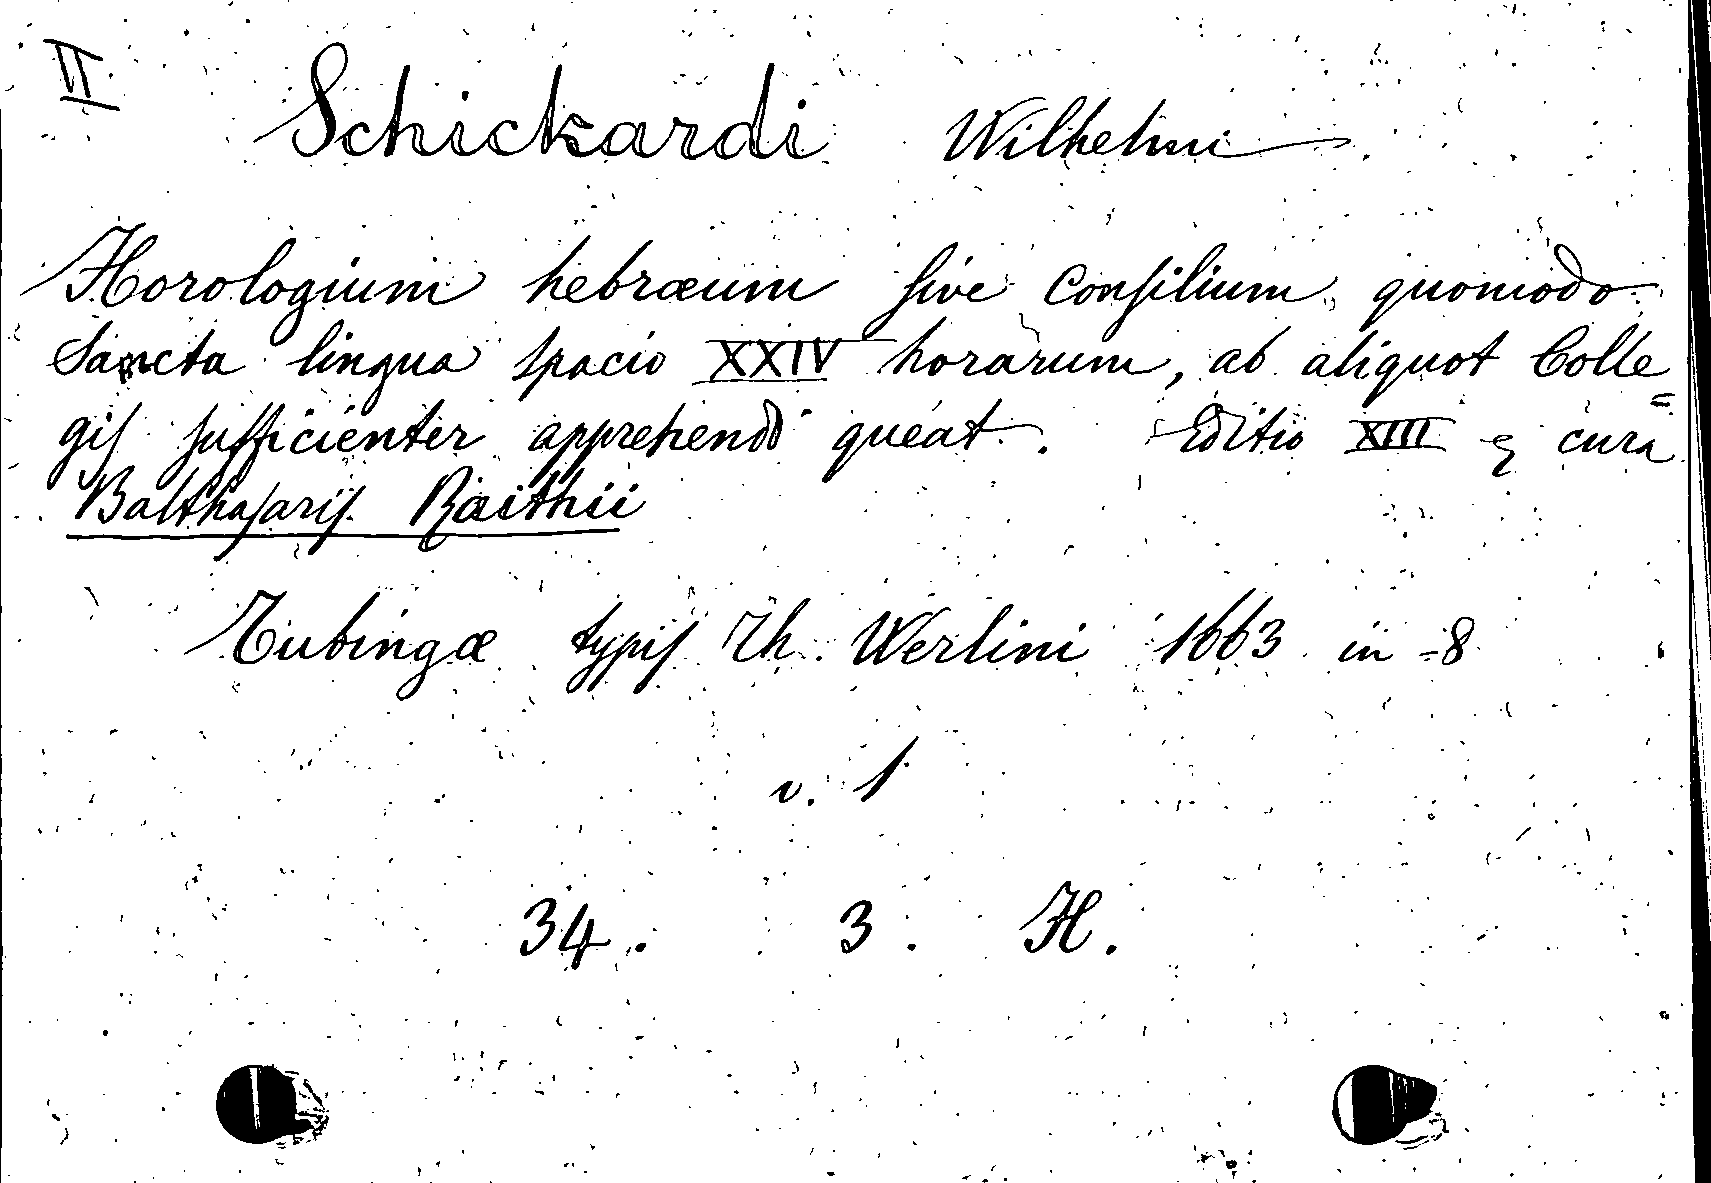 VI
Schickardi Wilhelmi
Horologium hebræum sive Consilium, quomodo
Sancta lingua spacio XXIV horarum, ab aliquot Colle=
gis sufficienter apprehendi queat. Editio XIII & cura
Balthasaris Raithii
Tubingæ typis Th. Werlini 1663 in -8
v. 1
34. 3. H.